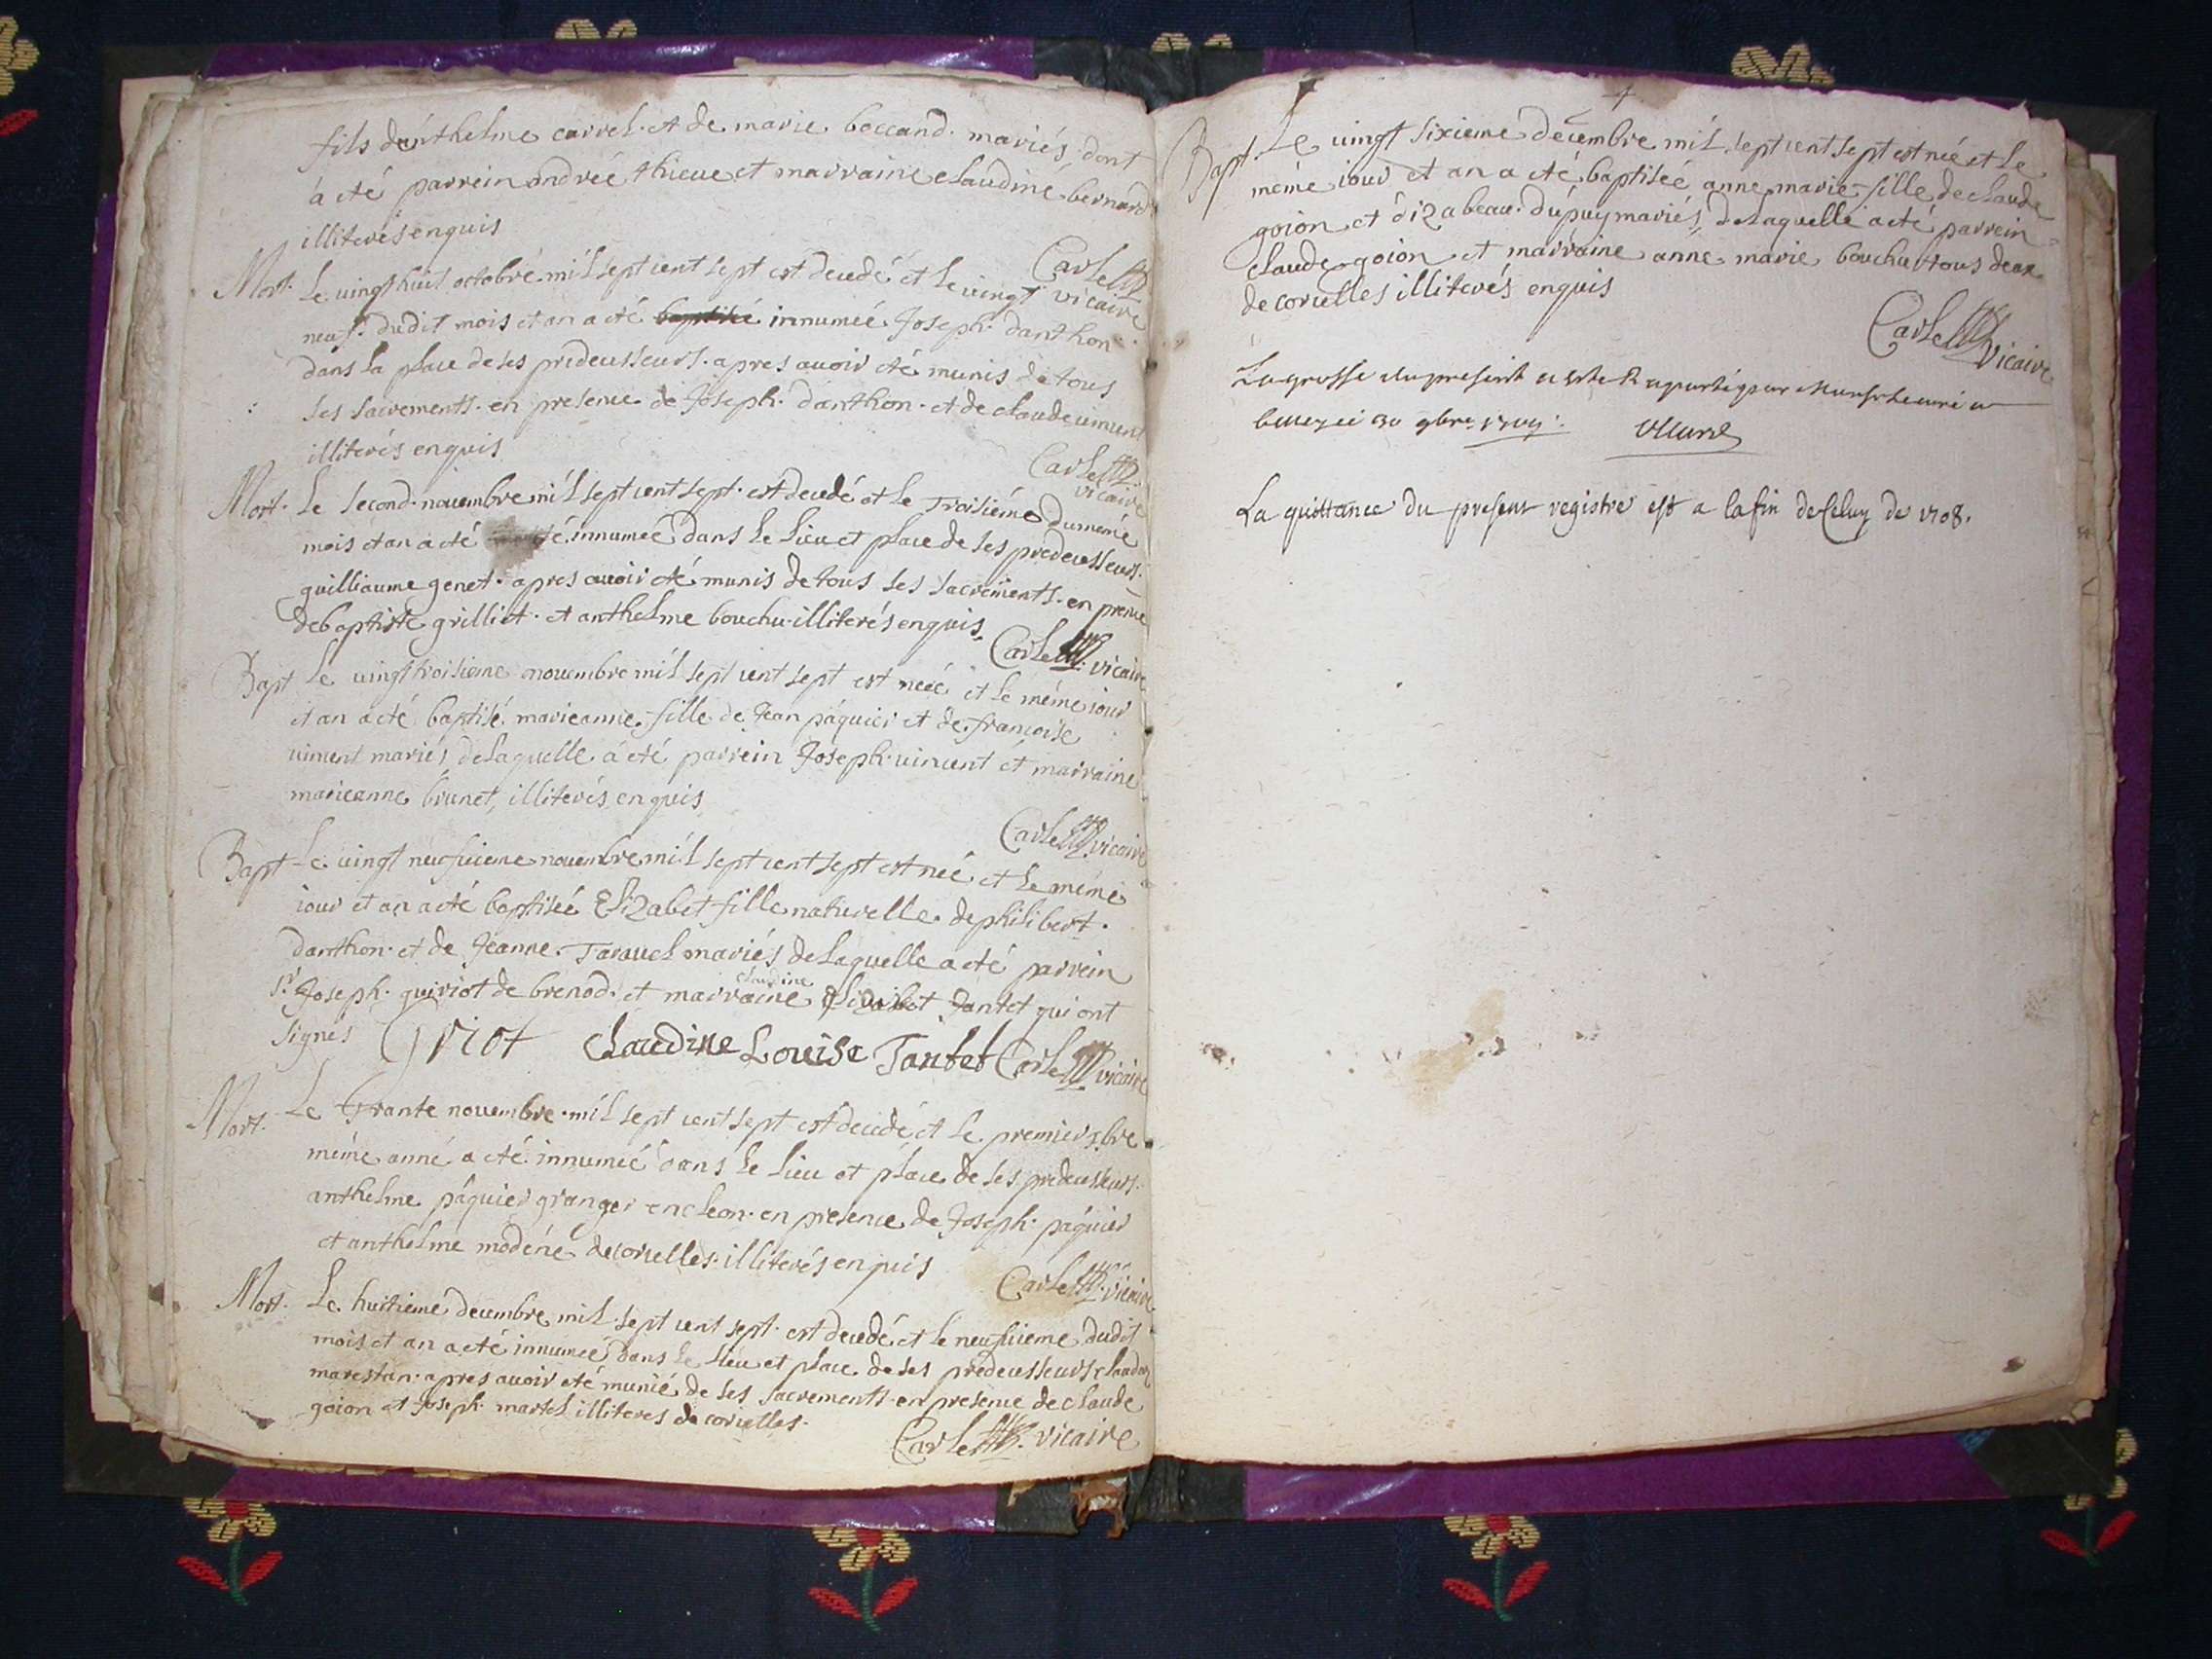 fils d'anthelme carrel et de marie boccand mariés, dont
à été parrein andreé thieue et marraine claudine bernard
illiterés enquis
Carle vicaire
Mort. Le uingt huit octobre mil sept cent sept est decedé et le uingt
neuf dudit mois et an a été baptisé innumeé Joseph danthon
dans la place de ses predecesseurs apres auoir été munis de tous
ses sacrements en presence de Joseph danthon et de claude uincent
illiterés enquis
Carle vicaire
Mort. Le second nouembre mil sept cent sept est decedé et le Troisiéme du meme
mois et an a été innumeé dans le lieu et place de ses predecesseurs
guilliaume genet apres auoir été munis de tous ses sacrements en
de baptiste grilliet et anthelme bouchu illiterés enquis
Carle vicaire
Bapt Le uingt troisieme nouembre mil sept cent sept est neée et le méme iour
et an a été baptisé marieanne fille de Jean páquier et de francoise
uincent mariés de laquelle á eté parrein Joseph uincent et marraine
marieanne brunet, illiterés enquis
Carle vicaire
Bapt Le uingt neufuieme nouembre mil sept cent sept est neé et le méme
iour et an a été baptisée Elizabet fille naturelle de philibert
danthon et de Jeanne Tarauel mariés de laquelle a été parrein
claudine
sr Joseph guiriot de brenod et marraine Elizabet Jantet qui ont
signés Claudine Louise Jantet Carle vicaire
Mort. Le trante nouembre mil sept cent sept est decedé et le premier xbre
méme anné a été innumeé dans le lieu et place de ses predecesseurs
anthelme páquier granger en cleon en presence de Joseph páquier
et anthelme modéné de corcelles illiterés enquis
Carle vicaire
Mort. Le huitieme decembre mil sept cent sept est decedé et le neufuieme dudit
mois et an a été innumeé dans le lieu et place de ses predecesseurs
marestan apres auoir eté munié de ses sacrements en presence de claude
goion et Joseph martel illiteres de corcelles
Carle vicaire
Bapt. Le uingt sixieme décembre mil sept cent sept est neé et le
méme iour et an a été baptiséé anne marie fille de claude
goion et d'izabeau dupuy mariés, de laquelle a été parrein
claude goion et marraine anne marie bouchu tous deux
de corcelles illiterés enquis
Carle vicaire
La grosse du present a este Raportée par le curé a
belley ce 30
La quittance du present registre est a la fin de Celuy de 1708.